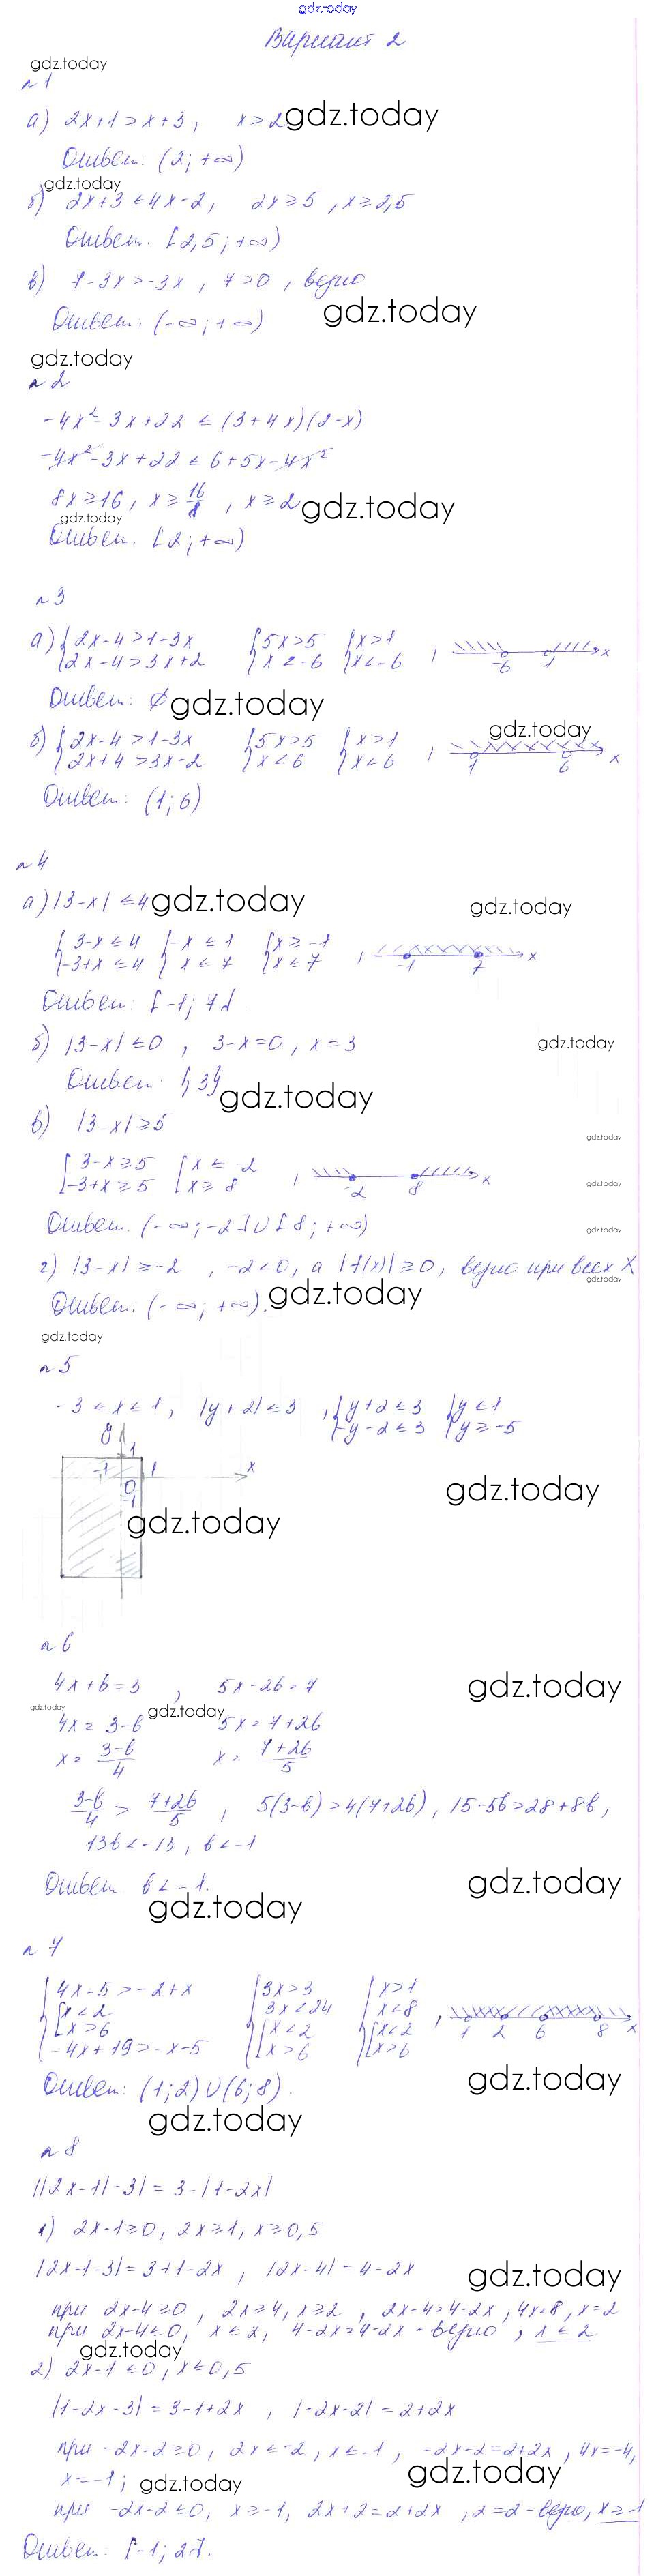 gdz.today
Вариант 2
gdz.today
№1
а) 2x+1>x+3, x>2 gdz.today
Ответ: (2; +∞)
gdz.today
б) 2x+3≤4x-2, 2x≥5, x≥2,5
Ответ. [2,5; +∞)
в) 7-3x>-3x, 7>0, верно
Ответ: (-∞; +∞) gdz.today
gdz.today
№2
-4x²-3x+22≤(3+4x)(2-x)
-4x²-3x+22≤6+5x-4x²
8x≥16, x≥16/8, x≥2 gdz.today
gdz.today
Ответ. [2; +∞)
№3
а) {2x-4>1-3x {5x>5 {x>1
{2x-4>3x+2 {x<-6 {x<-6, -6 1 x
Ответ: ∅ gdz.today
gdz.today
б) {2x-4>1-3x {5x>5 {x>1
{2x+4>3x-2 {x<6 {x<6, 1 6 x
Ответ: (1; 6)
№4
а) |3-x|≤4 gdz.today gdz.today
{3-x≤4 {-x≤1 {x≥-1
{-3+x≤4 {x≤7 {x≤7, -1 7 x
Ответ: [-1; 7].
б) |3-x|≤0, 3-x=0, x=3 gdz.today
Ответ: {3} gdz.today
в) |3-x|≥5 gdz.today
[3-x≥5 [x≤-2
[-3+x≥5 [x≥8, -2 8 x gdz.today
Ответ. (-∞; -2]∪[8; +∞) gdz.today
г) |3-x|≥-2, -2<0, а |f(x)|≥0, верно при всех x
gdz.today
Ответ. (-∞; +∞). gdz.today
gdz.today
№5
-3≤x≤1, |y+2|≤3, {y+2≤3 {y≤1
{-y-2≤3 {y≥-5
y 1
-1 1 x
0
-1
gdz.today
gdz.today
№6
4x+b=3, 5x-2b=7 gdz.today
gdz.today gdz.today
4x=3-b 5x=7+2b
x=(3-b)/4 x=(7+2b)/5
(3-b)/4>(7+2b)/5, 5(3-b)>4(7+2b), 15-5b>28+8b,
13b<-13, b<-1
Ответ b<-1. gdz.today
gdz.today
№7
{4x-5>-2+x {3x>3 {x>1
[x<2 3x<24 x<8
[x>6 [x<2 [x<2, 1 2 6 8 x
{-4x+19>-x-5 [x>6 [x>6
Ответ: (1; 2)∪(6; 8). gdz.today
gdz.today
№8
||2x-1|-3|=3-|1-2x|
1) 2x-1≥0, 2x≥1, x≥0,5
|2x-1-3|=3+1-2x, |2x-4|=4-2x gdz.today
при 2x-4≥0, 2x≥4, x≥2, 2x-4=4-2x, 4x=8, x=2
при 2x-4≤0, x≤2, 4-2x=4-2x - верно, x≤2
gdz.today
2) 2x-1≤0, x≤0,5
|1-2x-3|=3-1+2x, |-2x-2|=2+2x
при -2x-2≥0, 2x≤-2, x≤-1, -2x-2=2+2x, 4x=-4,
x=-1; gdz.today gdz.today
при -2x-2≤0, x≥-1, 2x+2=2+2x, 2=2-верно, x≥-1
Ответ: [-1; 2].